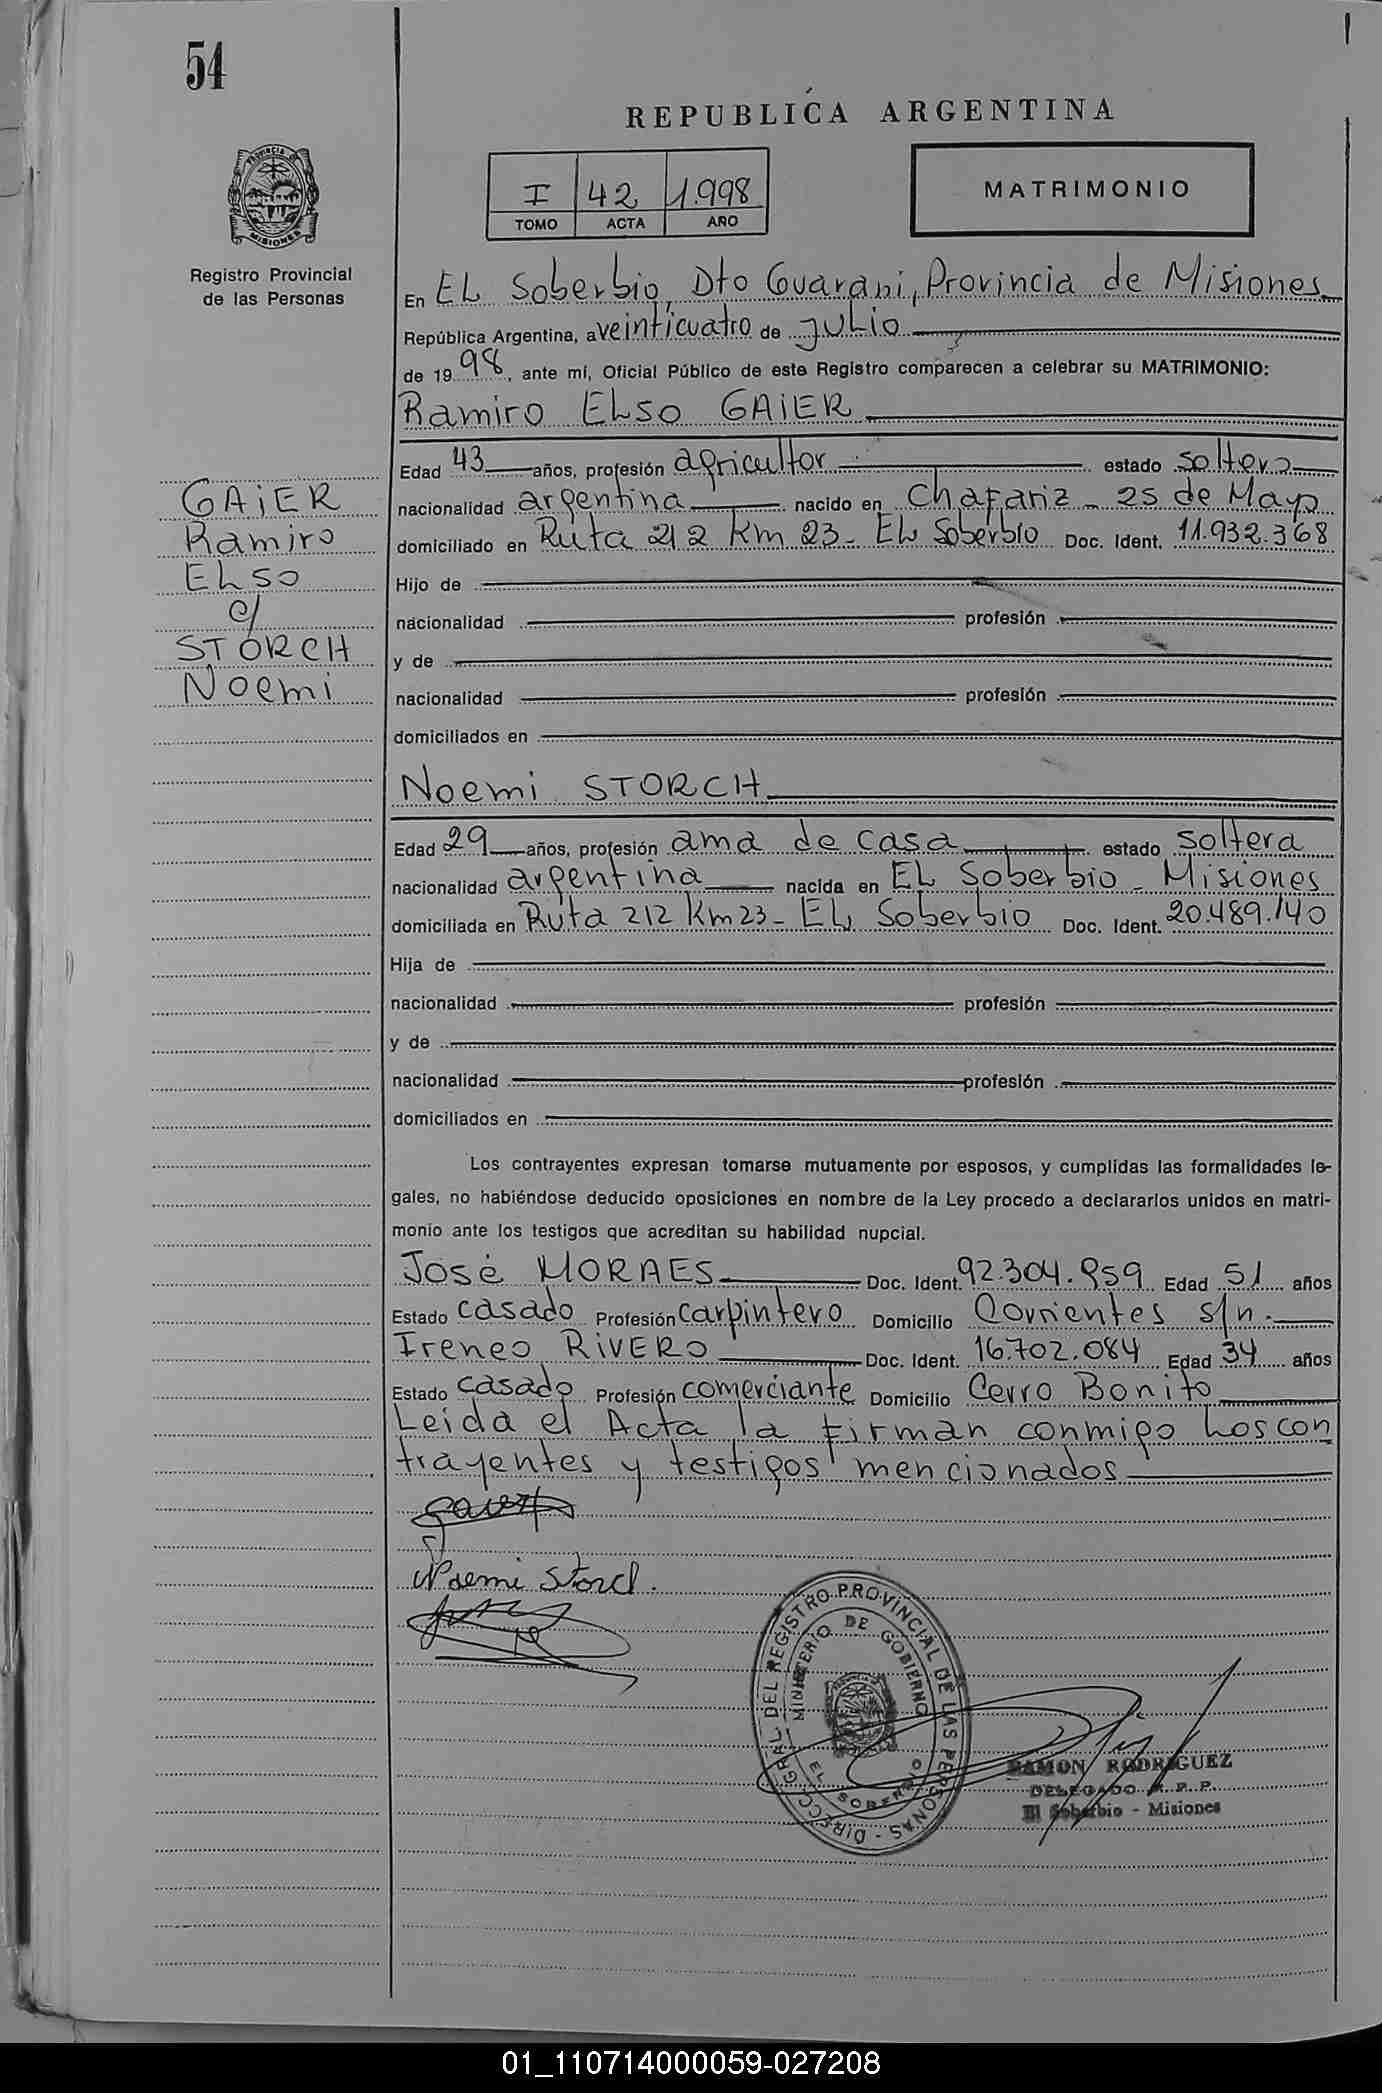 54
REPUBLICA ARGENTINA
PROVINCIA DE
MISIONES
Registro Provincial
de las Personas
I 42 1.998
TOMO ACTA AÑO
MATRIMONIO
En EL Soberbio, Dto Guarani, Provincia de Misiones
República Argentina, a veinticuatro de julio
de 1998, ante mí, Oficial Público de este Registro comparecen a celebrar su MATRIMONIO:
Ramiro ELso GAiER
Edad 43 años, profesión agricultor estado soltero
nacionalidad argentina nacido en Chafariz - 25 de Mayo
domiciliado en Ruta 212 Km 23 - EL Soberbio Doc. Ident. 11.932.368
Hijo de
nacionalidad profesión
y de
nacionalidad profesión
domiciliados en
GAiER
Ramiro
ELso
c/
STORCH
Noemi
Noemi STORCH
Edad 29 años, profesión ama de casa estado soltera
nacionalidad argentina nacida en EL Soberbio - Misiones
domiciliada en Ruta 212 Km 23 - EL Soberbio Doc. Ident. 20.489.140
Hija de
nacionalidad profesión
y de
nacionalidad profesión
domiciliados en
Los contrayentes expresan tomarse mutuamente por esposos, y cumplidas las formalidades le-
gales, no habiéndose deducido oposiciones en nombre de la Ley procedo a declararlos unidos en matri-
monio ante los testigos que acreditan su habilidad nupcial.
José MORAES Doc. Ident. 92.304.959 Edad 51 años
Estado casado Profesión carpintero Domicilio Corrientes s/n.
Ireneo RiVERO Doc. Ident. 16.702.084 Edad 34 años
Estado casado Profesión comerciante Domicilio Cerro Bonito
Leida el Acta la firman conmigo Los con
trayentes y testigos mencionados
Noemi Storch.
DIRECC. GRAL. DEL REGISTRO PROVINCIAL DE LAS PERSONAS -
MINISTERIO DE GOBIERNO
EL SOBERBIO
RAMON RODRIGUEZ
DELEGADO R. P. P.
El Soberbio - Misiones
01_110714000059-027208